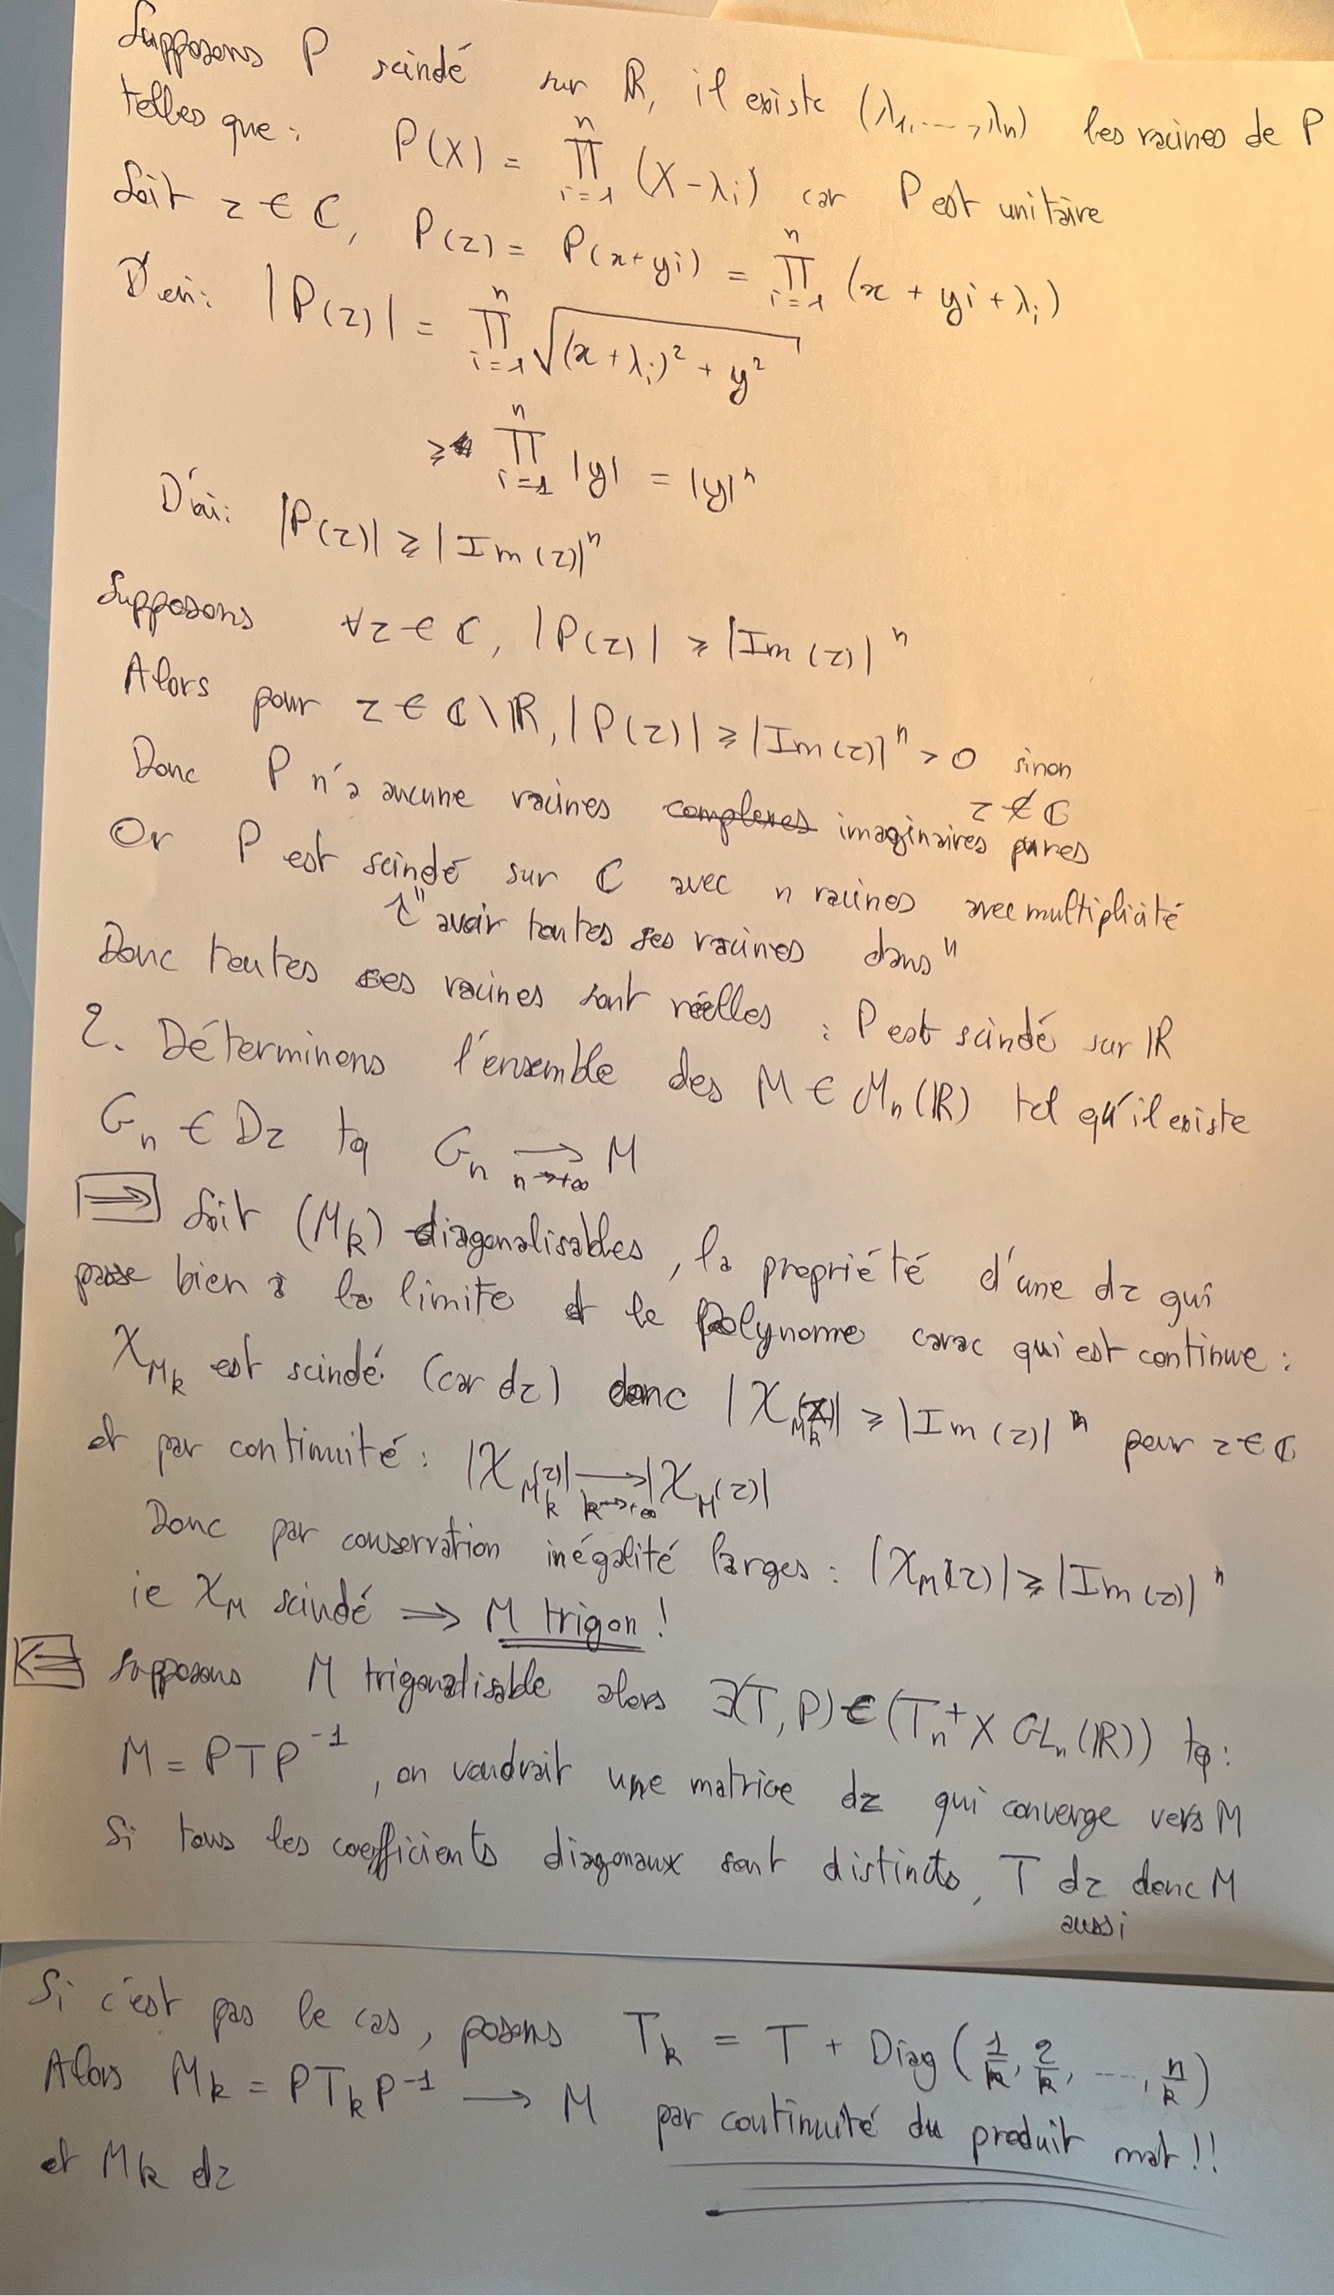 Supposons P scindé sur ℝ, il existe (λ₁, ..., λₙ) les racines de P
telles que : P(X) = ∏_{i=1}^{n} (X - λᵢ) car P est unitaire
Soit z ∈ ℂ, P(z) = P(x + yi) = ∏_{i=1}^{n} (x + yi + λᵢ)
D'où : |P(z)| = ∏_{i=1}^{n} √((x + λᵢ)² + y²)
≥ ∏_{i=1}^{n} |y| = |y|ⁿ
D'où : |P(z)| ≥ |Im(z)|ⁿ
Supposons ∀z ∈ ℂ, |P(z)| ≥ |Im(z)|ⁿ
Alors pour z ∈ ℂ\ℝ, |P(z)| ≥ |Im(z)|ⁿ > 0 sinon z ∉ ℂ
Donc P n'a aucune racines complexes imaginaires pures
Or P est scindé sur ℂ avec n racines avec multiplicité
"avoir toutes ses racines dans"
Donc toutes ses racines sont réelles : P est scindé sur ℝ
2. Déterminons l'ensemble des M ∈ Mₙ(ℝ) tel qu'il existe
Gₙ ∈ Dz tq Gₙ →_{n→+∞} M
⇒ Soit (M_k) diagonalisables, la propriété d'une dz qui
passe bien à la limite et le polynome carac qui est continue :
χ_{M_k} est scindé (car dz) donc |χ_{M_k}(z)| ≥ |Im(z)|ⁿ pour z ∈ ℂ
et par continuité : |χ_{M_k}(z)| →_{k→+∞} |χ_M(z)|
Donc par conservation inégalité larges : |χ_M(z)| ≥ |Im(z)|ⁿ
ie χ_M scindé ⇒ M trigon !
⇐ Supposons M trigonalisable alors ∃(T, P) ∈ (Tₙ⁺ × GLₙ(ℝ)) tq :
M = PTP⁻¹, on voudrait une matrice dz qui converge vers M
Si tous les coefficients diagonaux sont distincts, T dz donc M
aussi
Si c'est pas le cas, posons T_k = T + Diag(1/k, 2/k, ..., n/k)
Alors M_k = PT_kP⁻¹ → M par continuité du produit mat !!
et M_k dz